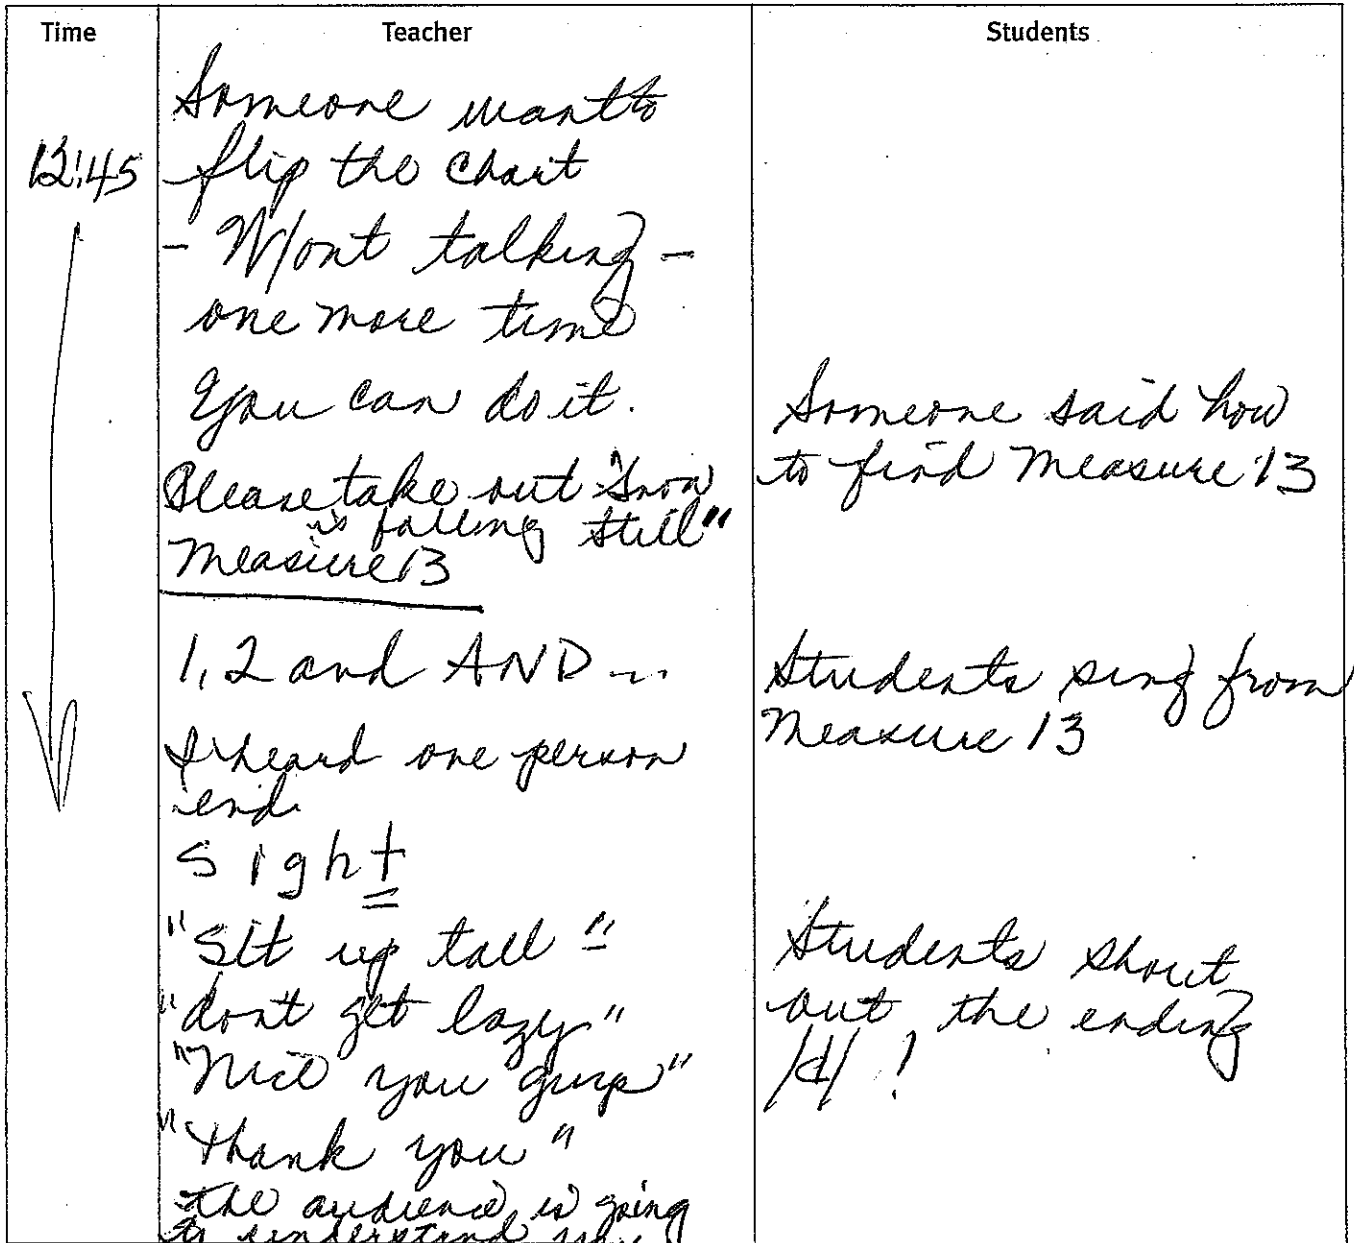 Time Teacher Students
Someone want to
12:45 flip the chart
- W/out talking -
one more time
You can do it.
Please take out "Snow
is falling still"
Measure 13
Someone said how
to find Measure 13
1, 2 and AND ...
I heard one person
end
sight
Students sing from
Measure 13
"Sit up tall"
"don't get lazy"
"Nice you guys"
"Thank you"
the audience is going
to understand you
Students shout
out the ending
/d/ !